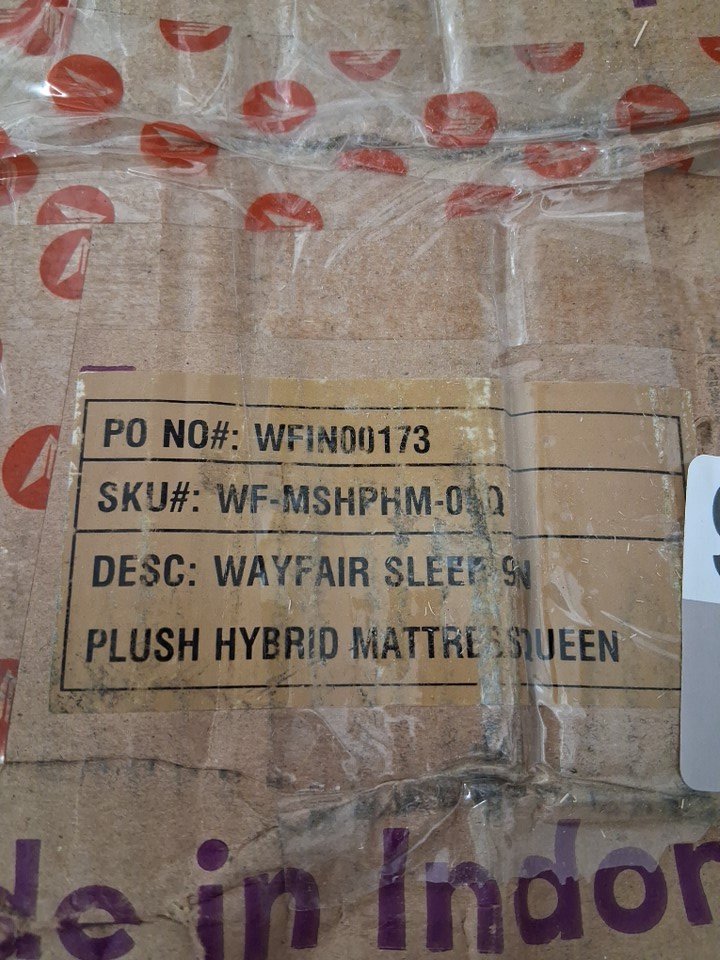 PO NO#: WFIN00173
SKU#: WF-MSHPHM-
DESC: WAYFAIR SLEEP
PLUSH HYBRID MATTRESS QUEEN
de in Indon